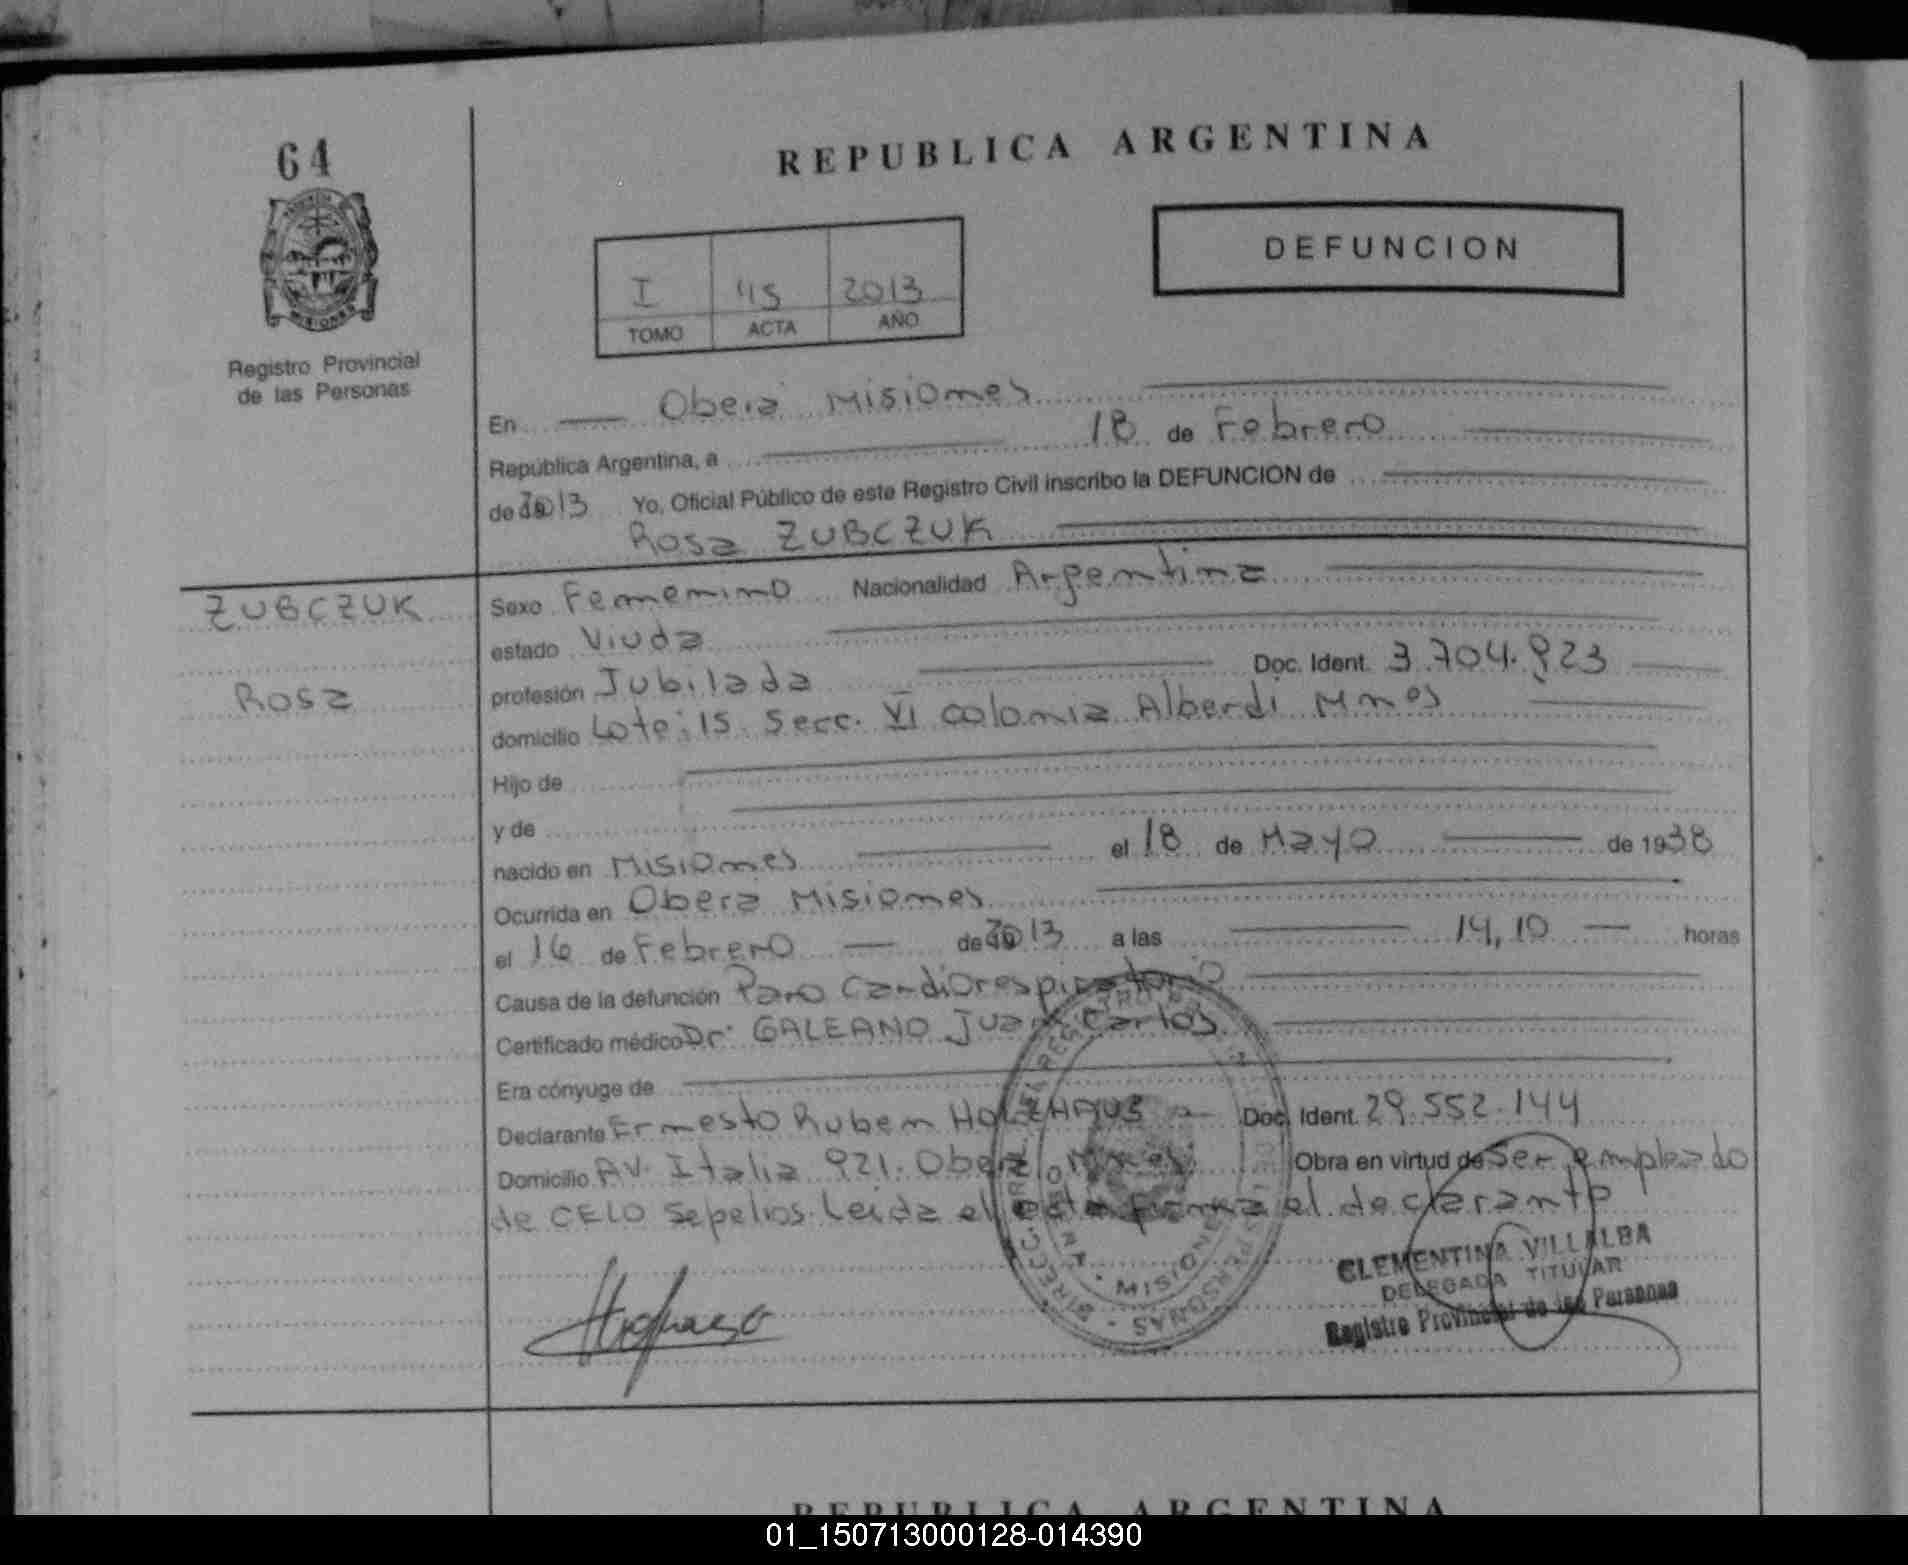 64
REPUBLICA ARGENTINA
DEFUNCION
I 45 2013
TOMO ACTA AÑO
MISIONES
Registro Provincial
de las Personas
En Obera Misiones
República Argentina, a 18 de Febrero
de 2013 Yo, Oficial Público de este Registro Civil inscribo la DEFUNCION de
Rosa ZUBCZUK
ZUBCZUK
Rosa
Sexo Femenino Nacionalidad Argentina
estado Viuda
profesión Jubilada Doc. Ident. 3.704.923
domicilio Lote: 15 Secc. VI colonia Alberdi Mnes
Hijo de
y de
nacido en Misiones el 18 de Mayo de 1938
Ocurrida en Obera Misiones
el 16 de Febrero de 2013 a las 14,10 horas
Causa de la defunción Paro Cardiorespiratorio
Certificado médico Dr: GALEANO Juan Carlos
Era cónyuge de
Declarante Ernesto Ruben HOLZHAUS Doc. Ident. 29.552.144
Domicilio AV. Italia 921. Obera Mnes Obra en virtud de Ser empleado
de CELO Sepelios. Leida el acta firma el declarante
CLEMENTINA VILLALBA
DELEGADA TITULAR
Registro Provincial de las Personas
MISIONES
REPUBLICA ARGENTINA
01_150713000128-014390